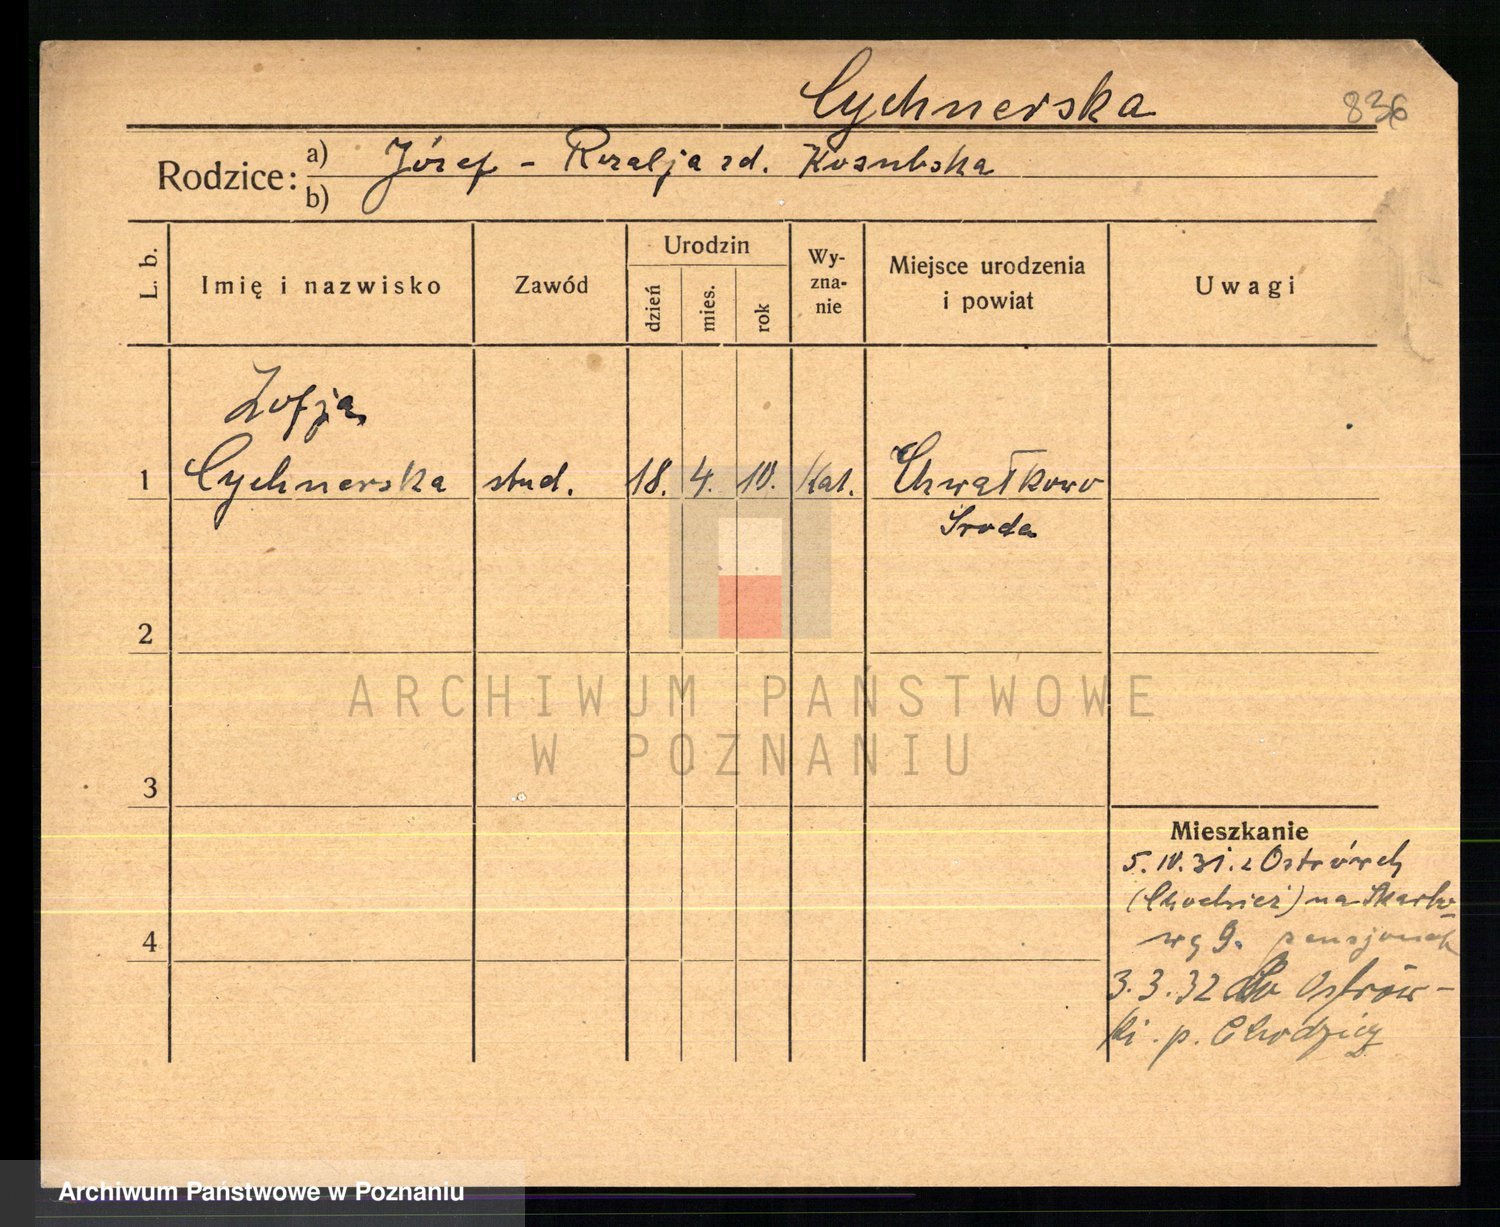 Cychnerska
836
Rodzice:
a) Józef - Rozalja zd. Kozubska
b)
L. b.
Imię i nazwisko
Zawód
Urodzin
dzień
mies.
rok
Wy-
zna-
nie
Miejsce urodzenia
i powiat
Uwagi
Zofja
1 Cychnerska stud. 18. 4. 10. Kat. Chwałkowo
Sroda
2
ARCHIWUM PAŃSTWOWE
W POZNANIU
3
Mieszkanie
5. 10. 31. z Ostrówek
(Chodzież) na Skarbo-
wą 9. pensjonat
4
3. 3. 32 do Ostrów-
ki p. Chodzież
Archiwum Państwowe w Poznaniu